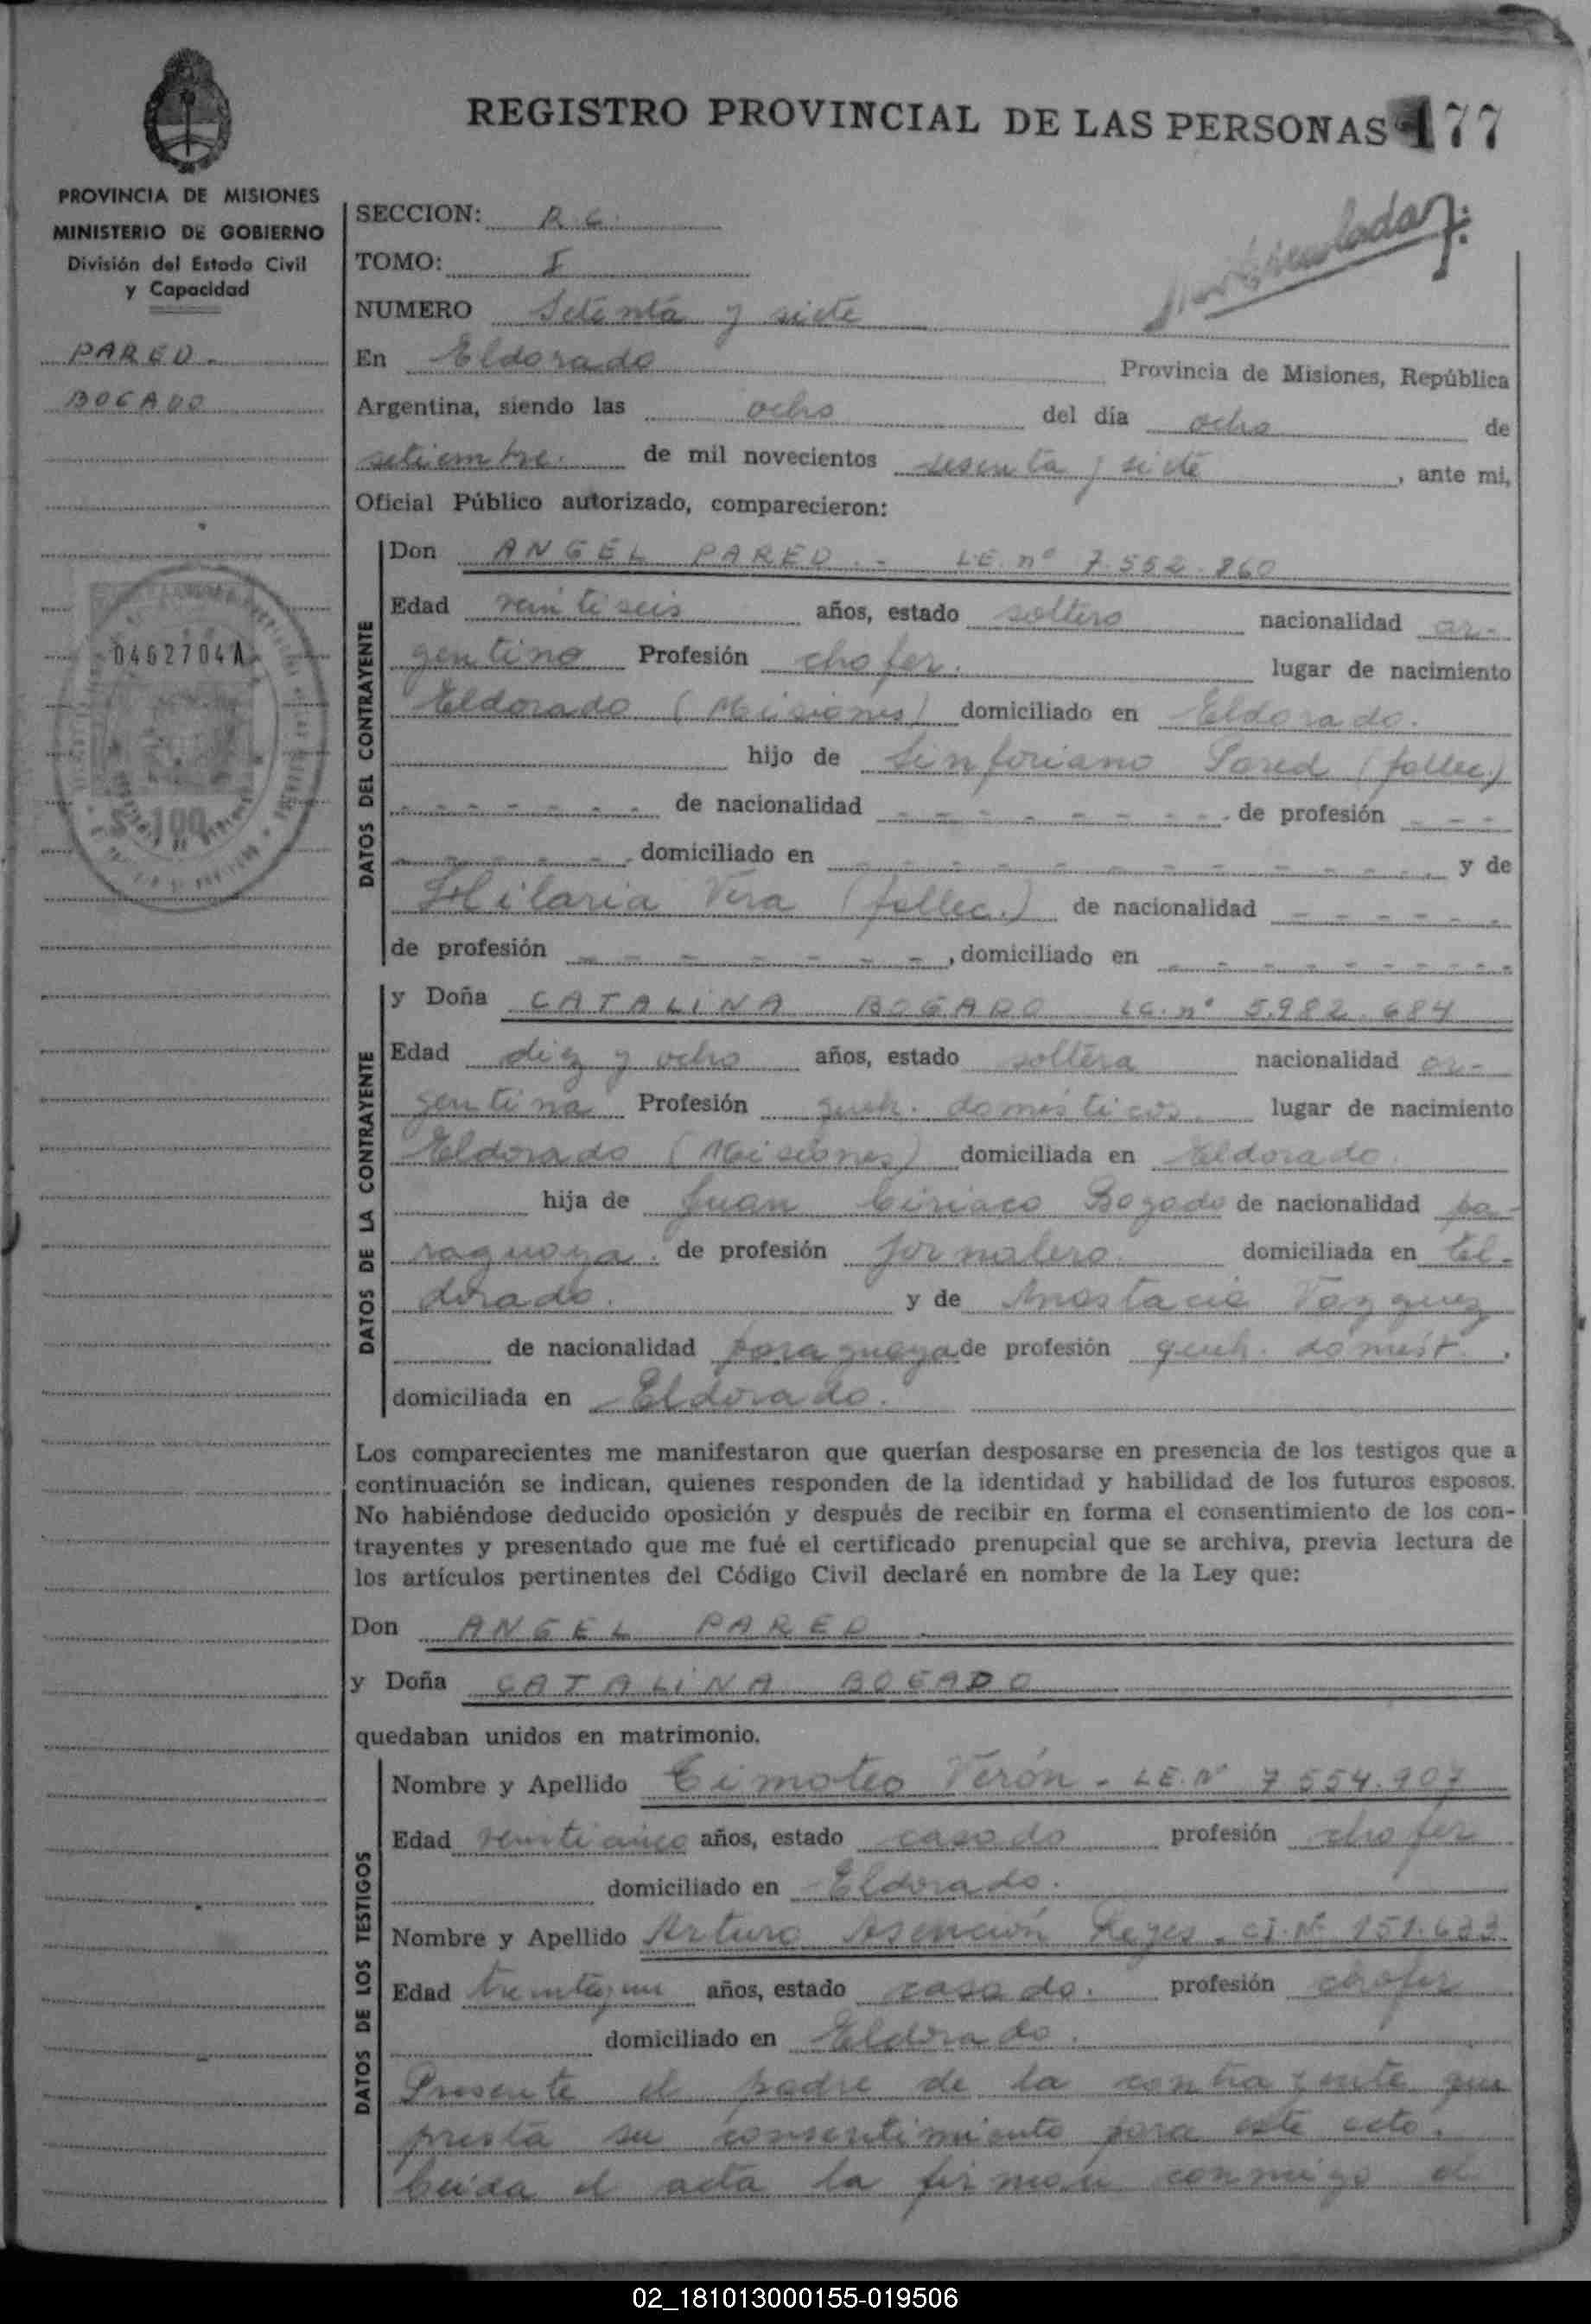 REGISTRO PROVINCIAL DE LAS PERSONAS 177
PROVINCIA DE MISIONES
MINISTERIO DE GOBIERNO
División del Estado Civil
y Capacidad
PARED.
BOGADO
0462704A
$ 100
SECCION: R.C.
TOMO: I
NUMERO Setenta y siete
En Eldorado Provincia de Misiones, República
Argentina, siendo las ocho del día ocho de
setiembre. de mil novecientos sesenta y siete, ante mi,
Oficial Público autorizado, comparecieron:
DATOS DEL CONTRAYENTE
Don ANGEL PARED.- L.E. nº 7.552.860
Edad veintiseis años, estado soltero nacionalidad ar-
gentino Profesión chofer. lugar de nacimiento
Eldorado (Misiones) domiciliado en Eldorado.
hijo de Sinforiano Pared (fallec.)
- - - - - - de nacionalidad - - - - - - - - de profesión - - -
- - - - - domiciliado en - - - - - - - - - - y de
Hilaria Vera (fallec.) de nacionalidad - - - - - -
de profesión - - - - - - - -, domiciliado en - - - - - - - - -
DATOS DE LA CONTRAYENTE
y Doña CATALINA BOGADO L.C. nº 5.982.684
Edad diez y ocho años, estado soltera nacionalidad ar-
gentina Profesión queh. domésticos lugar de nacimiento
Eldorado (Misiones) domiciliada en Eldorado.
hija de Juan Ciriaco Bogado de nacionalidad pa-
raguaya. de profesión jornalero. domiciliada en El-
dorado. y de Anastacia Vazquez
de nacionalidad paraguaya de profesión queh. domést.,
domiciliada en Eldorado.
Los comparecientes me manifestaron que querían desposarse en presencia de los testigos que a
continuación se indican, quienes responden de la identidad y habilidad de los futuros esposos.
No habiéndose deducido oposición y después de recibir en forma el consentimiento de los con-
trayentes y presentado que me fué el certificado prenupcial que se archiva, previa lectura de
los artículos pertinentes del Código Civil declaré en nombre de la Ley que:
Don ANGEL PARED.
y Doña CATALINA BOGADO
quedaban unidos en matrimonio.
DATOS DE LOS TESTIGOS
Nombre y Apellido Timoteo Verón - L.E. Nº 7.554.907
Edad veinticinco años, estado casado profesión chofer
domiciliado en Eldorado.
Nombre y Apellido Arturo Asención Reyes. C.I. Nº 151.633.
Edad treinta y un años, estado casado. profesión chofer
domiciliado en Eldorado.
Presente el padre de la contrayente que
presta su consentimiento para este acto.
Leída el acta la firman conmigo el
02_181013000155-019506